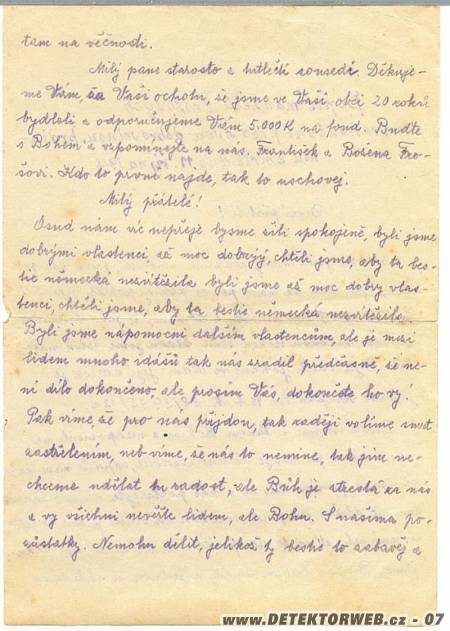 tam na věčnosti.
Milý pane starosto a hutlečtí sousedí. Děkuje-
me Vám, za Vaši ochotu, še jsme ve Vaší obci 20 roků
bydleli a odporučujeme Vám 5.000 K na fond. Buďte
s Bohem a vspomínejte na nás. František a Božena Fro-
šovi. Kdo to první najde, tak to uschovej.
Milý přátelé!
Osud nám víc nepřeje bysme šili spokojeně, byli jsme
dobrými vlastenci, až moc dobrýj, chtěli jsme, aby ta bes-
tie německá nezvítězila byli jsme až moc dobrý vlas-
tenci, chtěli jsme, aby ta bestie německá nezvítězila.
Byli jsme nápomocni dalším vlastencům, ale je mezi
lidem mnoho idášů tak nás zradil předčasně, še ne-
ní dílo dokončeno, ale prosím Vás, dokončete ho vy!
Pak víme, še pro nás přijdou, tak raději volíme smrt
zastřelením, neb víme, še nás to nemine, tak jim ne-
chceme udělat tu radost, ale Bůh je strestá za nás
a vy všichni nevěřte lidem, ale Bohu. S našima po-
zůstatky. Nemohu dělit, jelikož ty bestie to zabavěj a
www.DETEKTORWEB.cz - 07